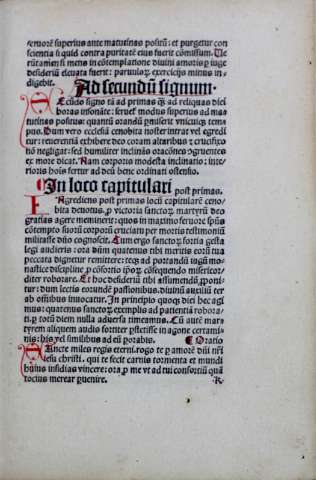 feruorē superius ante matutinas positū: et purgetur con
scientia si quid contra puritatē eius fuerit cōmissum. Ue
rūtamen si mens in cōtemplatione diuini amoris ⁊ iuge
desideriū eleuata fuerit: paruulorꝝ exercitijs minus in-
digebit.
Ad secundū signum.
Ecūdo signo tā ad primas ꝙ̄ ad reliquas diei
horas insonāte: seruet modus superius ad ma
tutinas positus: quantū orandi pmiserit vniuscuiusqꝫ tem
pus. Dum vero ecclesiā cenobita noster intrat vel egredi
tur: reuerentiā exhibere deo coram altaribus ⁊ crucifixo
nō negligat: sed humiliter inclinās oracōnes ꝯgruentes
ex more dicat. Nam corporis modesta inclinatio: inte-
rioris hoīs fertur ad deū bene ordinati ostensio.
¶ In loco capitulari post primas.
Egrediens post primas locū capitularē ceno-
bita deuotus, ꝓ victoria sanctoꝝ martyrū deo
gratias agere meminerit: quos in maximo feruore ip̄ius
cōtempto suorū corporū cruciatu per mortis testimoniū
militasse dn̄o cognoscit. Cum ergo sanctoꝝ fortia gesta
legi audieris: ora dūm quatenus tibi meritis eorū tua
peccata dignetur remittere: teqꝫ ad portandū iugū mo-
nastice discipline ⁊ cōsortio ip̄oꝝ cōsequendo misericor
diter roborare. Et hoc desideriū tibi assumendū ꝓponi
tur: dum lectis eorundē passionibus, diuinū auxiliū ter
ab omnibus inuocatur. In principio quoqꝫ diei hec agi
mus: quatenus sanctoꝝ exemplo ad patientiā robora-
ti, ꝑ totū diem nulla aduersa timeamus. Cū autē mar-
tyrem aliquem audis fortiter pstitisse in agone certami-
nis: his vel similibus ad eū ꝑorabis. ¶ Oratio
Ancte miles regis eterni, rogo te ꝓ amorē dn̄i nr̄i
iesu christi. qui te fecit carnis tormenta et mundi
huius insidias vincere: ora ꝓ me vt ad tui consortiū quā
tocius merear ꝑuenire. ·R·